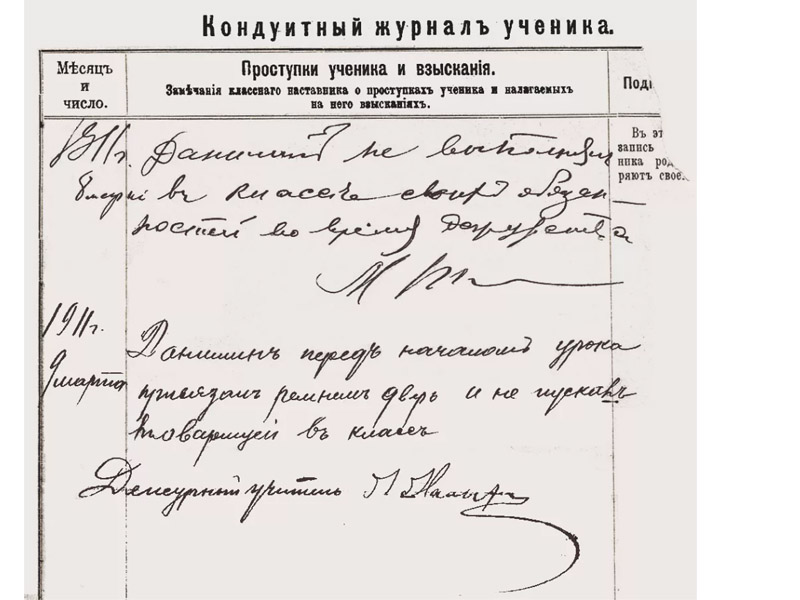 Кондуитный журналъ ученика.
Мѣсяцъ
и
число.
Проступки ученика и взысканія.
Замѣчанія класснаго наставника о проступкахъ ученика и налагаемыхъ
на него взысканіяхъ.
Въ эт
запись
ника род
ряютъ свое
1911г.
Данилинъ не выполнял
въ классѣ своихъ обязан-
ностей во время дежурства
1911г.
9 марта
Данилинъ передъ началомъ урока
привязалъ ремнемъ дверь и не пускалъ
товарищей въ классъ
Дежурный учитель